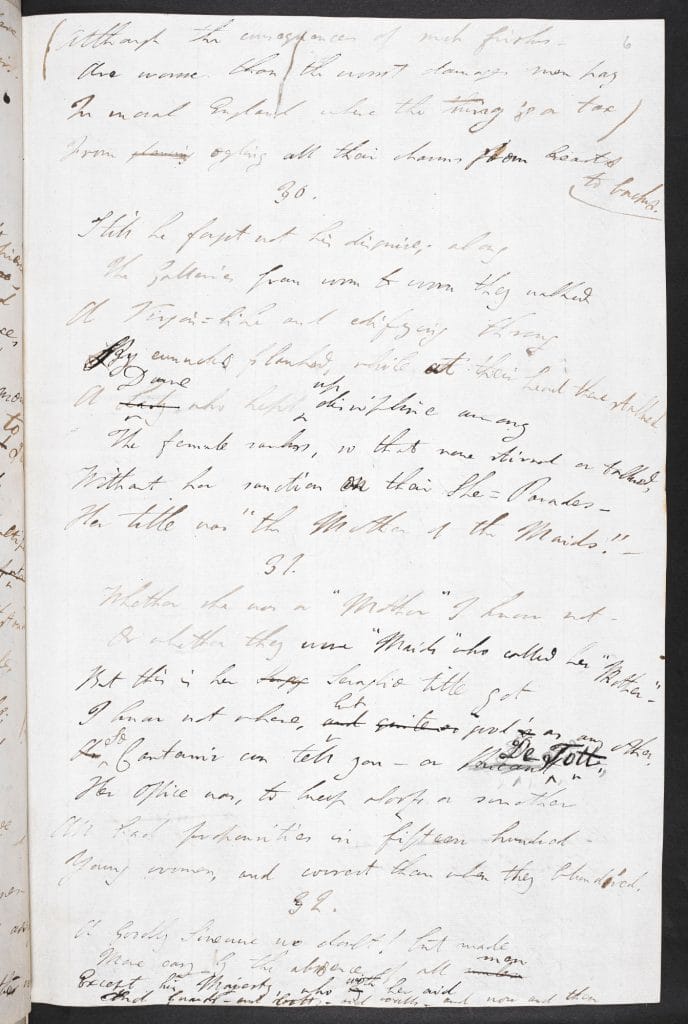 (Although the consequences of such frisks - 6
Are worse than the worst damages men pay
In moral England where the thing is a tax)
From ogling all their charms from breasts
to backs.
30.
Still he forgot not his disguise; along
The Galleries from room to room they walked
A Virgin=like and edifying throng
By eunuchs flanked, while at their head there stalked
Dame up
A Lady who kept discipline among
The female ranks, so that none stirred or talked,
Without her sanction on their She=Parades -
Her title was "the Mother of the Maids." -
31.
Whether she was a "Mother" I know not -
Or whether they were "Maids" who called her "Mother -"
But this is her Seraglio title got
but
I know not where, and quite as good as any other.
So De Tott,
Cantemir can tell you - or
Her Office was, to keep aloof or smother
All bad propensities in fifteen hundred
Young women, and correct them when they blundered.
32.
A Goodly Sinecure no doubt! but made
men
More easy by the absence of all
Except his Majesty who with her aid
And guards - and bolts - and walls - and now and then